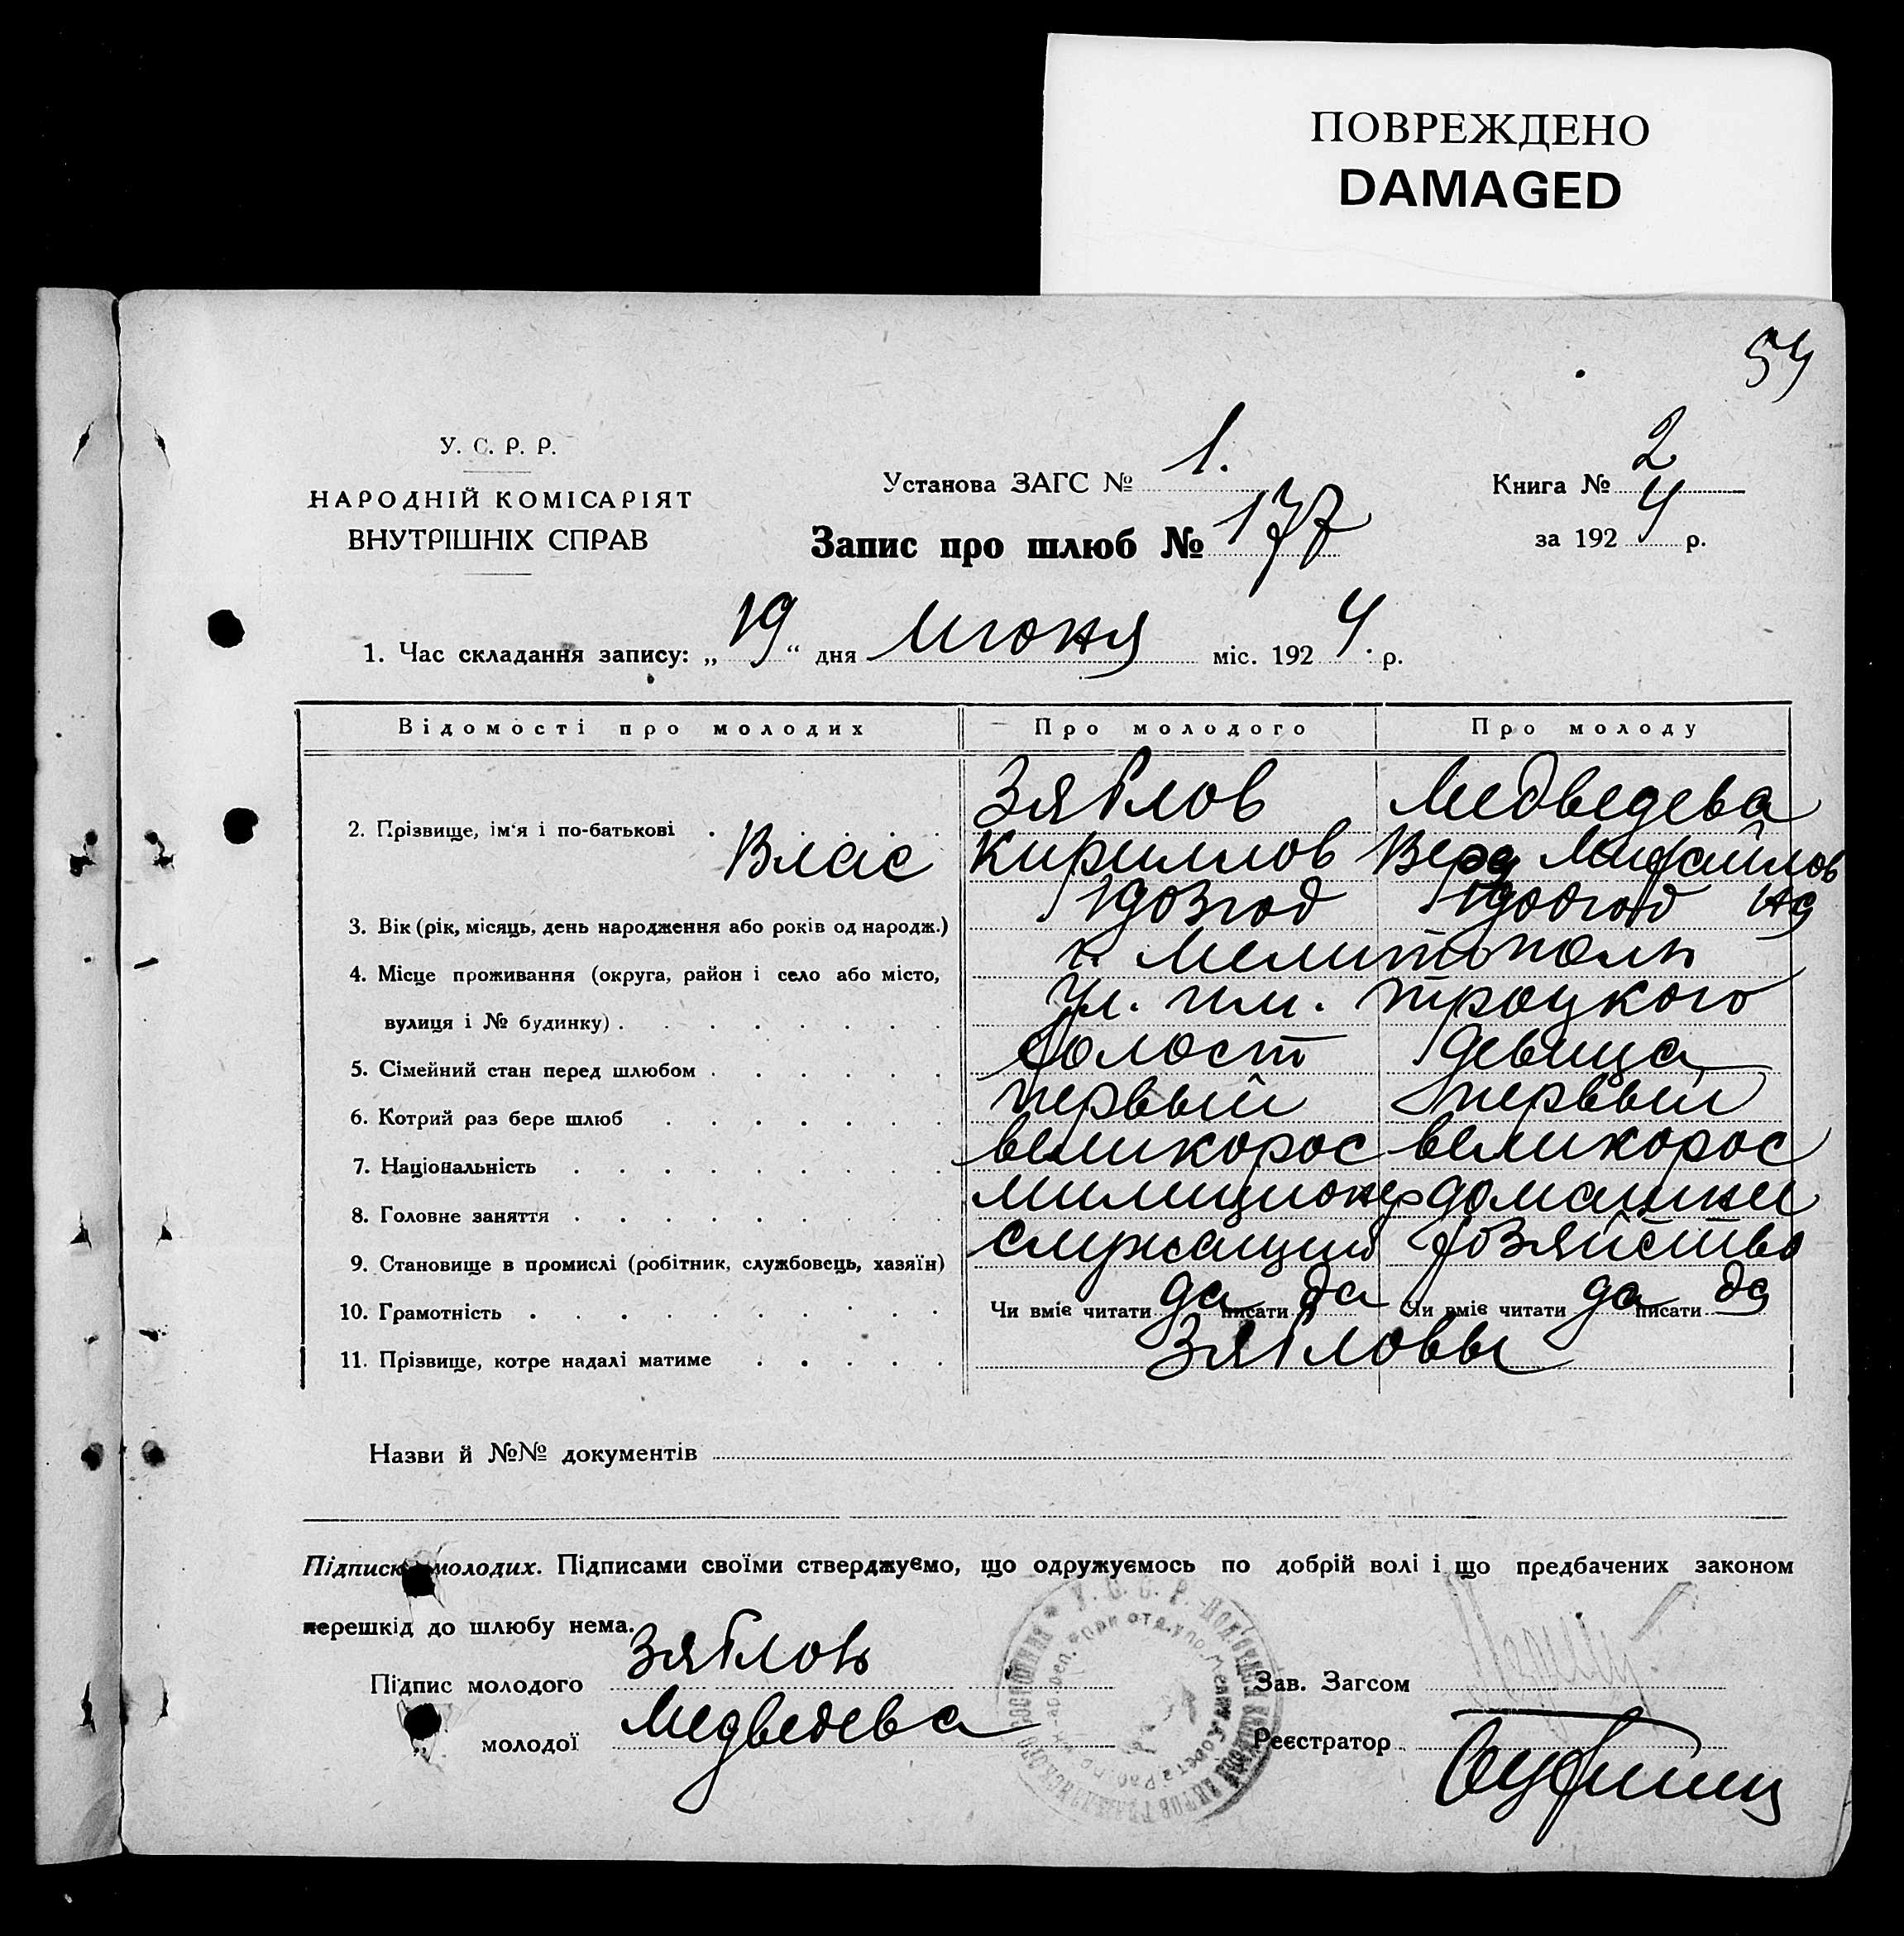 ПОВРЕЖДЕНО
DAMAGED
54
У. С. Р. Р.
НАРОДНІЙ КОМІСАРІЯТ
ВНУТРІШНІХ СПРАВ
Установа ЗАГС № 1.
Запис про шлюб № 177
Книга № 2
за 1924 р.
1. Час складання запису: „19“ дня Июня міс. 1924. р.
Відомості про молодих Про молодого Про молоду
Зяблов Медведева
2. Прізвище, ім'я і по-батькові
Влас Кириллов Вера Михайлов
на
3. Вік (рік, місяць, день народження або років од народж.) год год
4. Місце проживання (округа, район і село або місто, г. Мелитополь
вулиця і № будинку) ул. им. Троцкого
5. Сімейний стан перед шлюбом холост девица
6. Котрий раз бере шлюб первый первый
7. Національність великорос великорос
8. Головне заняття милиционер домашнее
9. Становище в промислі (робітник, службовець, хазяїн) служащий хозяйство
10. Грамотність Чи вміє читати да писати да Чи вміє читати да писати да
11. Прізвище, котре надалі матиме Зябловы
Назви й №№ документів
Підписка молодих. Підписами своїми стверджуємо, що одружуємось по добрій волі і що предбачених законом
перешкід до шлюбу нема.
Підпис молодого Зяблов
„ молодої Медведева
Зав. Загсом
Реєстратор